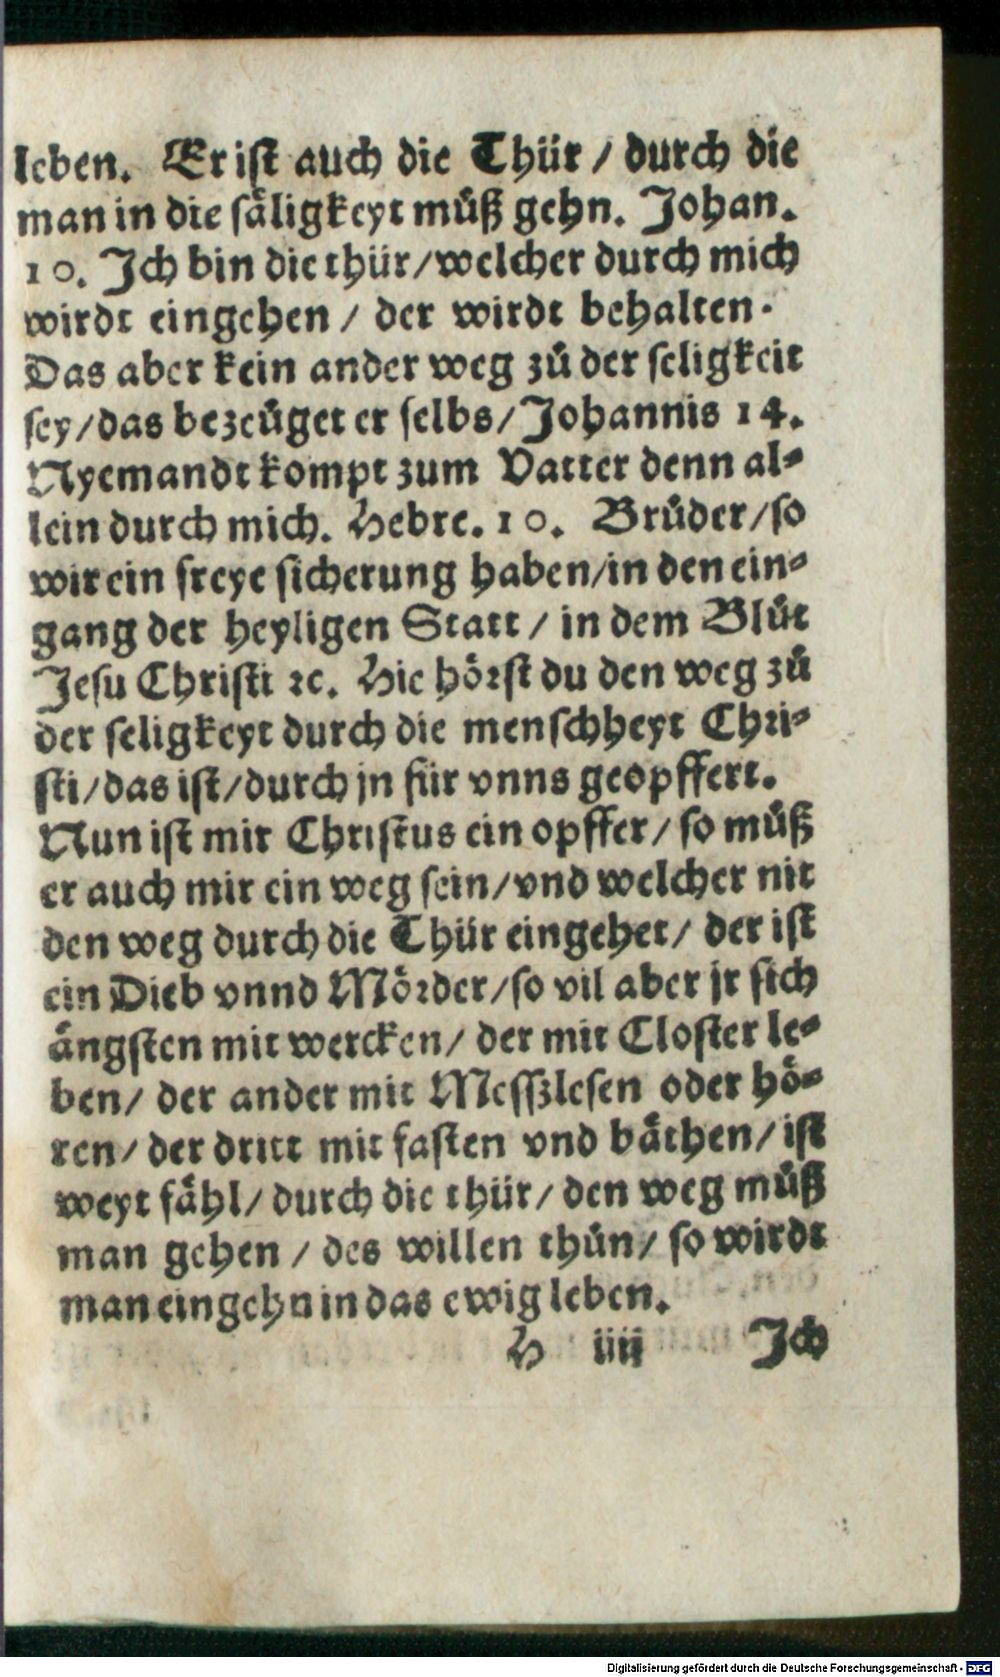 leben. Er ist auch die Thür / durch die
man in die såligkeyt můß gehn. Johan.
10. Jch bin die thür/welcher durch mich
wirdt eingehen / der wirdt behalten.
Das aber kein ander weg zů der seligkeit
sey/das bezeüget er selbs/Johannis 14.
Nyemandt kompt zum Vatter denn al-
lein durch mich. Hebre. 10. Brůder/so
wir ein freye sicherung haben/in den ein-
gang der heyligen Statt / in dem Blůt
Jesu Christi ꝛc. Hie hörst du den weg zů
der seligkeyt durch die menschheyt Chri-
sti/das ist/durch jn für vnns geopffert.
Nun ist mir Christus ein opffer/ so můß
er auch mir ein weg sein/vnd welcher nit
den weg durch die Thür eingehet/ der ist
ein Dieb vnnd Mörder/so vil aber jr sich
ångsten mit wercken/ der mit Closter le-
ben/ der ander mit Messzlesen oder hö-
ren/ der dritt mit fasten vnd båthen/ ist
weyt fåhl/ durch die thür/ den weg můß
man gehen / des willen thůn/ so wirdt
man eingehn in das ewig leben.
H iiij Jch
Digitalisierung gefördert durch die Deutsche Forschungsgemeinschaft - DFG